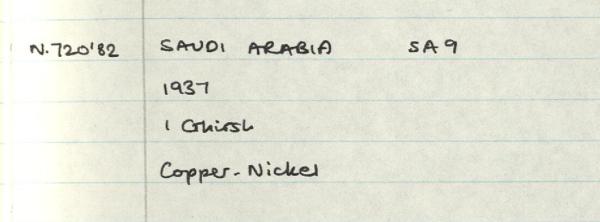 N.720'82 SAUDI ARABIA SA9
1937
1 Ghirsh
Copper-Nickel